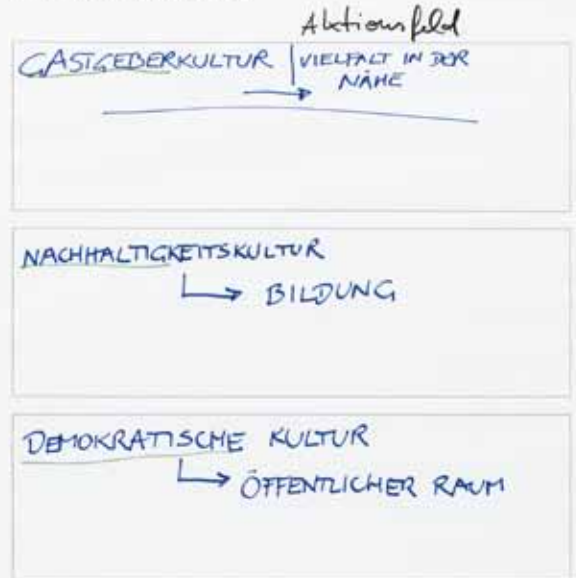 Aktionsfeld
GASTGEBERKULTUR | VIELFALT IN DER
NÄHE
NACHHALTIGKEITSKULTUR
BILDUNG
DEMOKRATISCHE KULTUR
ÖFFENTLICHER RAUM